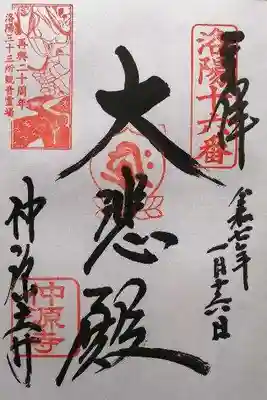 洛陽十六番
奉拝
令和七年
一月十六日
大悲殿
再興二十周年
洛陽三十三所観音霊場
仲源寺